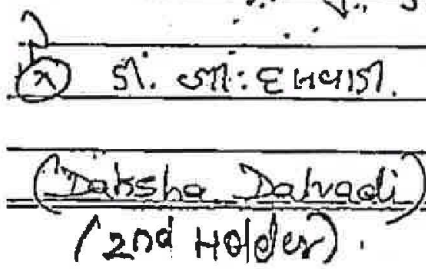 ડી. જી. દલવાડી.
(Daksha Dalvadi)
(2nd Holder).